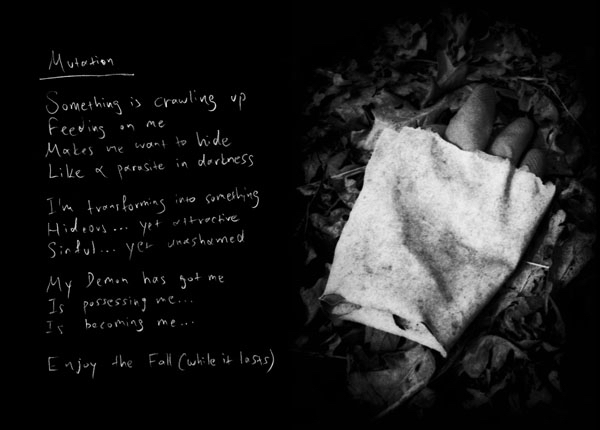 Mutation
Something is crawling up
Feeding on me
Makes me want to hide
Like a parasite in darkness
I'm transforming into something
Hideous... yet attractive
Sinful... yet unashamed
My Demon has got me
Is possessing me...
Is becoming me...
Enjoy the Fall (while it lasts)